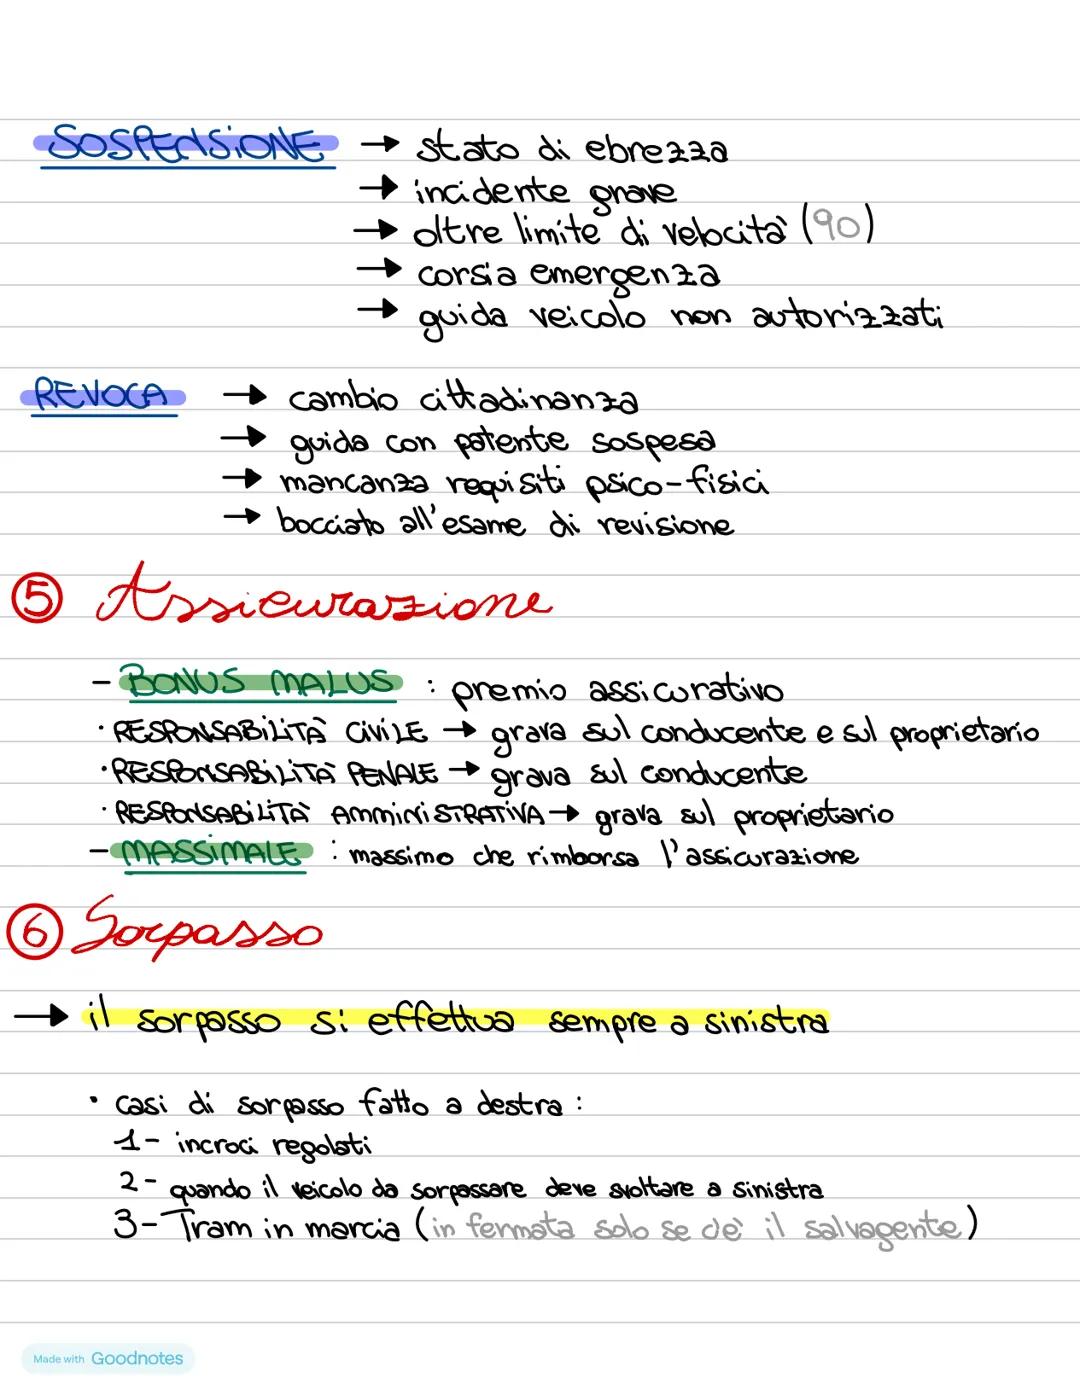 SOSPENSIONE → stato di ebrezza
→ incidente grave
→ oltre limite di velocità (90)
→ corsia emergenza
→ guida veicolo non autorizzati
REVOCA → cambio cittadinanza
→ guida con patente sospesa
→ mancanza requisiti psico-fisici
→ bocciato all'esame di revisione
⑤ Assicurazione
- BONUS MALUS : premio assicurativo
· RESPONSABILITÀ CIVILE → grava sul conducente e sul proprietario
· RESPONSABILITÀ PENALE → grava sul conducente
· RESPONSABILITÀ AMMINISTRATIVA → grava sul proprietario
- MASSIMALE : massimo che rimborsa l'assicurazione
⑥ Sorpasso
→ il sorpasso si effettua sempre a sinistra
• casi di sorpasso fatto a destra :
1- incroci regolati
2- quando il veicolo da sorpassare deve svoltare a sinistra
3- Tram in marcia (in fermata solo se c'è il salvagente)
Made with Goodnotes